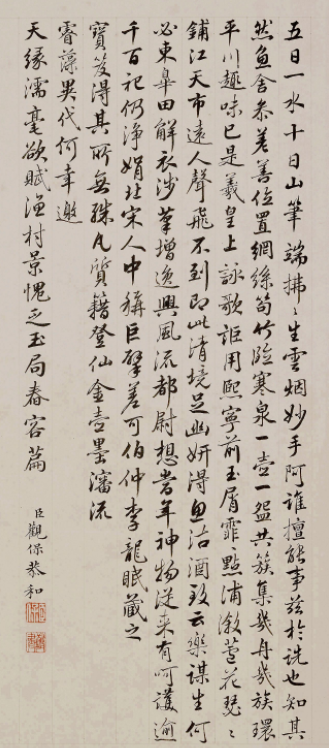 五日一水十日山筆端拂拂生雲烟妙手阿誰擅能事茲於詵也知其
然魚舍參差善位置網絲笱竹臨寒泉一壺一盌共簇集幾舟幾族環
平川趣味已是羲皇上詠歌詎用熙寧前玉屑霏霏點浦漵蘆花瑟瑟
鋪江天市遠人聲飛不到即此清境足幽妍得魚沽酒致云樂謀生何
必東皋田解衣涉筆增逸興風流都尉想當年神物從來有呵護逾
千百祀仍淨娟在宋人中稱巨擘差可伯仲李龍眠藏之
寶笈得其所無殊凡質籍登仙金壺墨瀋流
睿藻異代何幸邀
天緣濡毫欲賦漁村景愧乏玉局春容篇
臣觀保恭和